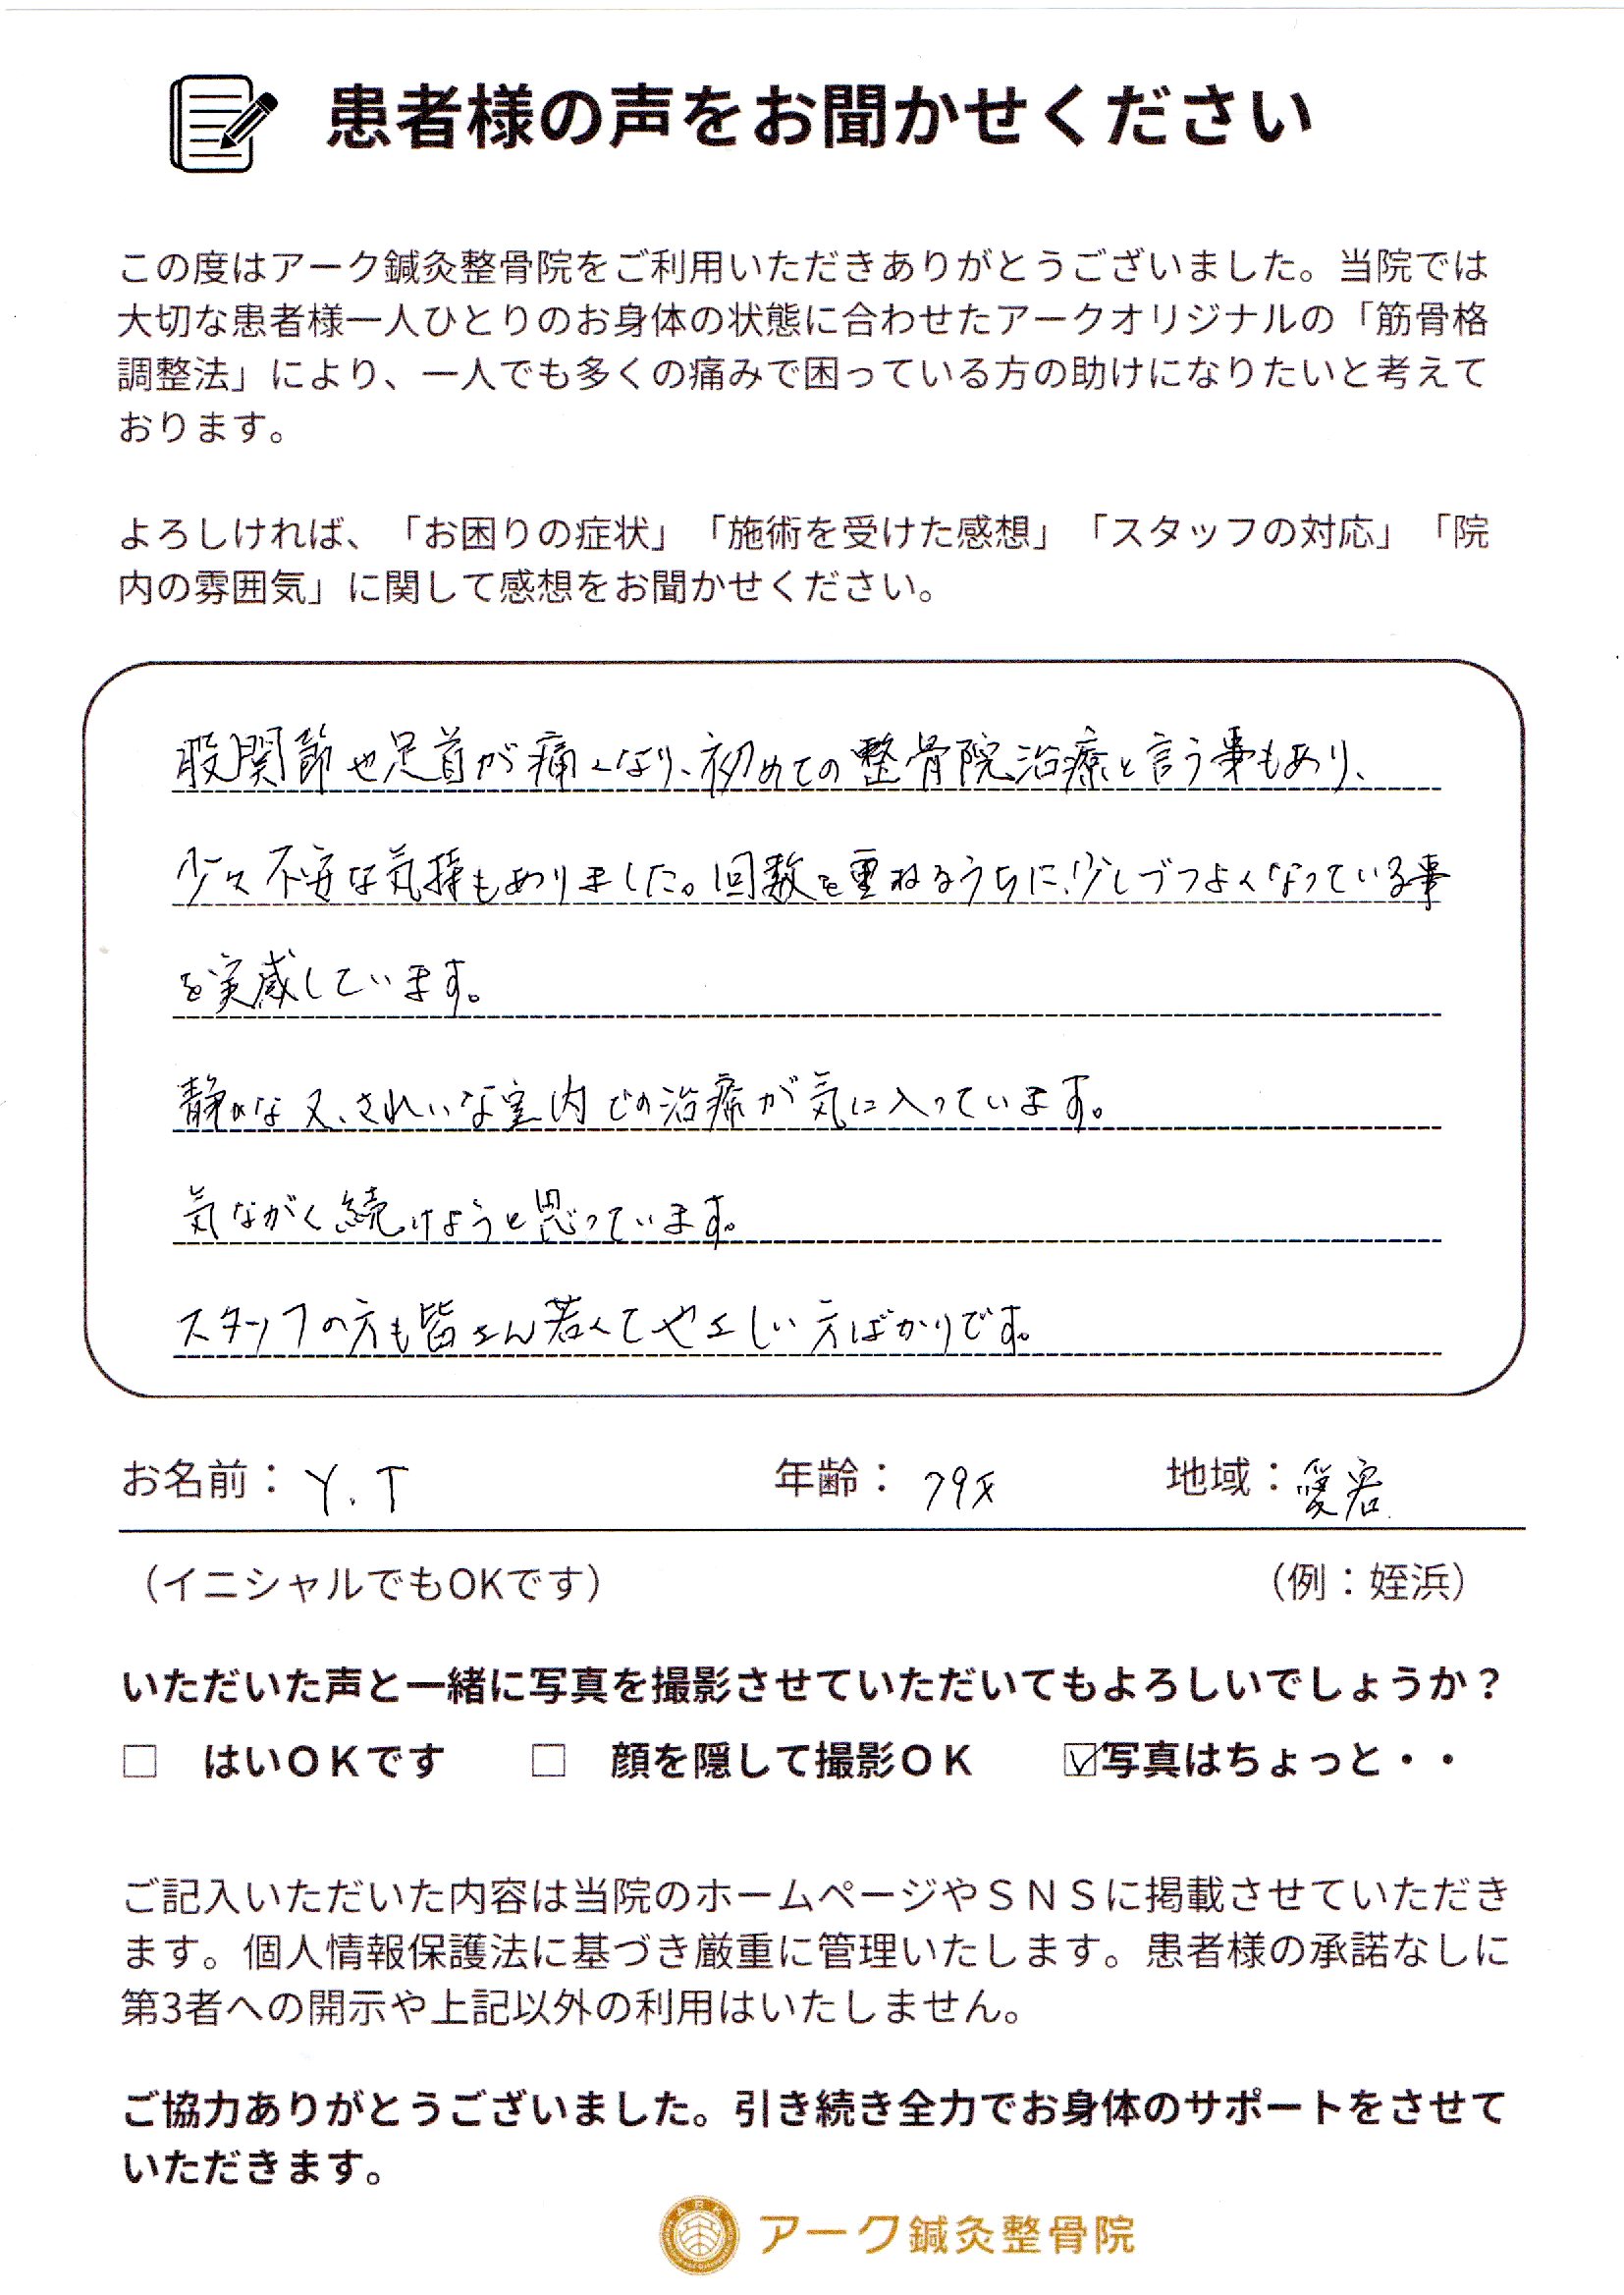 患者様の声をお聞かせください
この度はアーク鍼灸整骨院をご利用いただきありがとうございました。当院では
大切な患者様一人ひとりのお身体の状態に合わせたアークオリジナルの「筋骨格
調整法」により、一人でも多くの痛みで困っている方の助けになりたいと考えて
おります。
よろしければ、「お困りの症状」「施術を受けた感想」「スタッフの対応」「院
内の雰囲気」に関して感想をお聞かせください。
股関節や足首が痛くなり、初めての整骨院治療と言う事もあり、
少々不安な気持もありました。回数を重ねるうちに、少しづつよくなっている事
を実感しています。
静かな又、きれいな室内での治療が気に入っています。
気ながく続けようと思っています。
スタッフの方も皆さん若くてやさしい方ばかりです。
お名前： Y.T 年齢： 79才 地域：愛宕
（イニシャルでもOKです） （例：姪浜）
いただいた声と一緒に写真を撮影させていただいてもよろしいでしょうか？
□ はいＯＫです □ 顔を隠して撮影ＯＫ ☑写真はちょっと・・
ご記入いただいた内容は当院のホームページやＳＮＳに掲載させていただき
ます。個人情報保護法に基づき厳重に管理いたします。患者様の承諾なしに
第3者への開示や上記以外の利用はいたしません。
ご協力ありがとうございました。引き続き全力でお身体のサポートをさせて
いただきます。
ARK
アーク鍼灸整骨院